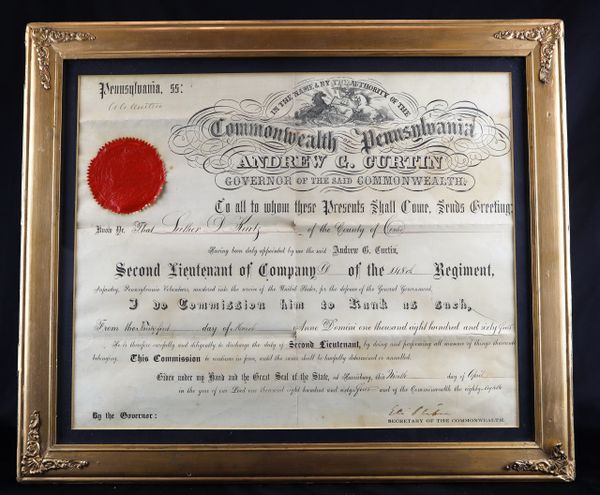 Pennsylvania, ss:
A G Curtin
IN THE NAME & BY THE AUTHORITY OF THE
Commonwealth Pennsylvania
ANDREW G. CURTIN
GOVERNOR OF THE SAID COMMONWEALTH.
To all to whom these Presents Shall Come, Sends Greeting:
Know Ye, That Luther D Kurtz of the County of
Having been duly appointed by me the said Andrew G. Curtin,
Second Lieutenant of Company D of the 148th Regiment,
Infantry, Pennsylvania Volunteers, mustered into the service of the United States, for the defence of the General Government,
I do Commission him to Rank as such,
From the day of Anno Domini one thousand eight hundred and sixty
He is therefore carefully and diligently to discharge the duty of Second Lieutenant, by doing and performing all manner of things thereunto
belonging. This Commission to continue in force, until the same shall be lawfully determined or annulled.
Given under my Hand and the Great Seal of the State, at Harrisburg, this Ninth day of April
in the year of our Lord one thousand eight hundred and sixty and of the Commonwealth the eighty
By the Governor:
SECRETARY OF THE COMMONWEALTH.